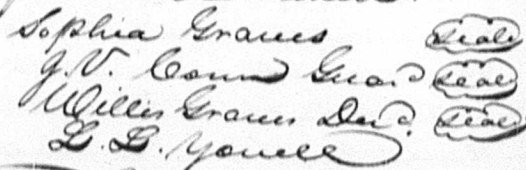 Sophia Graves seal
J. V. Conn Guard seal
Willis Graves Dec'd. seal
L. L. Yowell